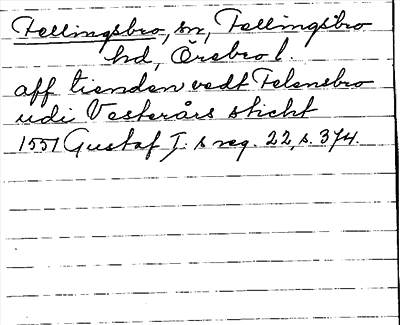 Fellingsbro, sn, Fellingsbro
hd, Örebro l.
aff tienden vedt Felensbro
udi Vesterårs sticht
1551 Gustaf I:s reg. 22, s. 374.